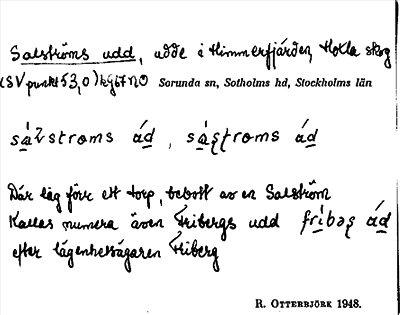 Salströms udd, udde i Himmerfjärden, Hokla skog
(SV punkt 53,0) kgbl NO Sorunda sn, Sotholms hd, Stockholms län
Där låg förr ett torp, bebott av en Salström
Kallas numera även Fribergs udd
efter lägenhetsägaren Friberg
R. OTTERBJÖRK 1948.